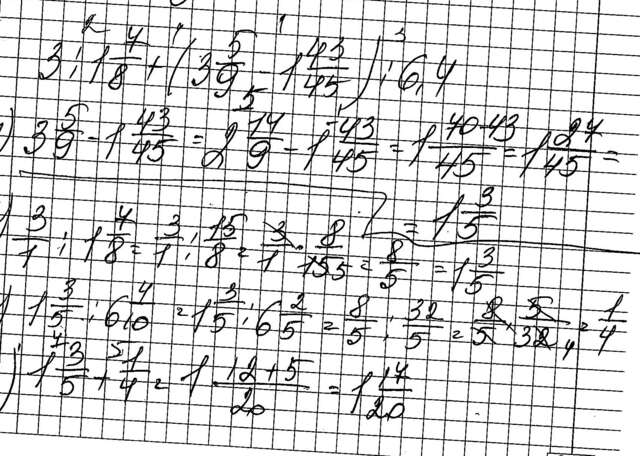 3 : 1 7/8 + (3 5/9 - 1 43/45) : 6,4
) 3 5/9 - 1 43/45 = 2 14/9 - 1 43/45 = 1 70-43/45 = 1 27/45 =
= 1 3/5
) 3/1 : 1 7/8 = 3/1 : 15/8 = 3/1 · 8/15 5 = 8/5 = 1 3/5
) 1 3/5 : 6 4/10 = 1 3/5 : 6 2/5 = 8/5 : 32/5 = 8/5 · 5/32 4 = 1/4
) 1 3/5 + 1/4 = 1 12+5/20 = 1 17/20